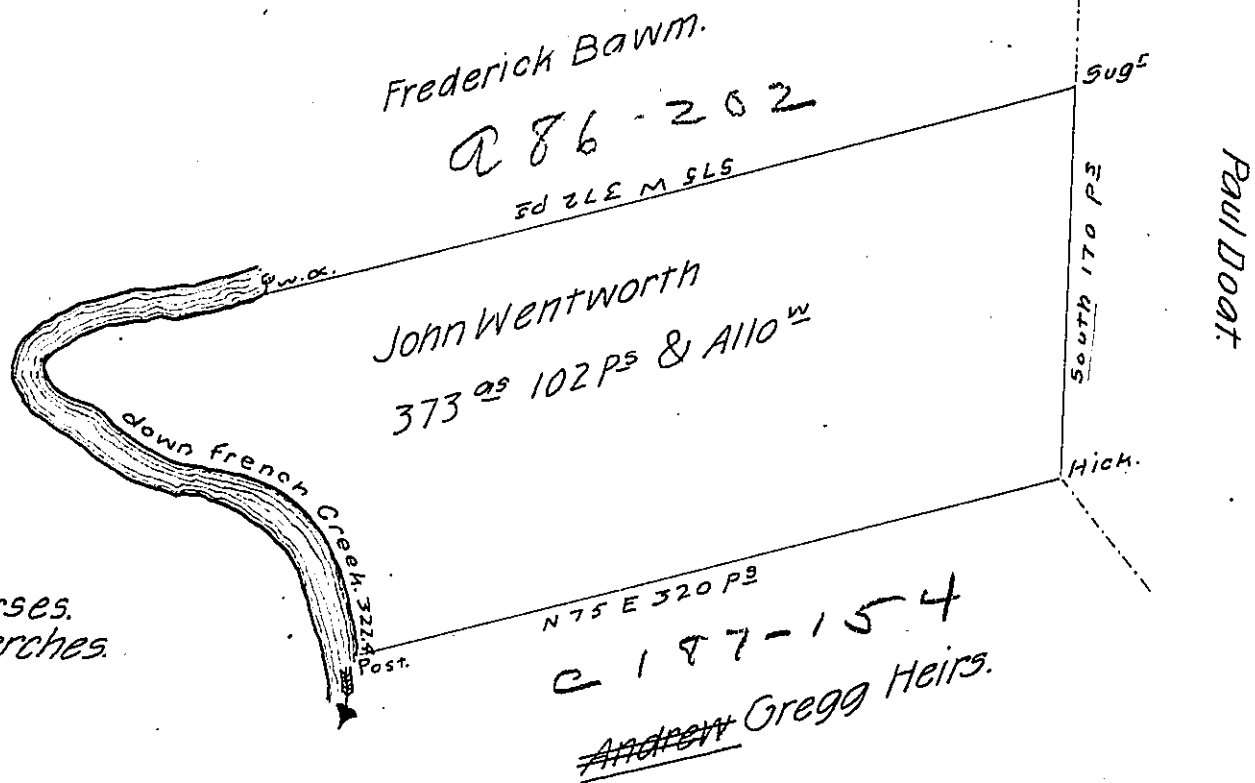 Frederick Bawm.
a 86-202
S75 W 372 Ps
Sugr
South 170 Ps
Paul Doat.
w.o.
John Wentworth
373 as 102 Ps & Allow
Hick.
down French Creek. 322.4
Post.
N 75 E 320 Ps
C 187-154
Andrew Gregg Heirs.
rses.
erches.